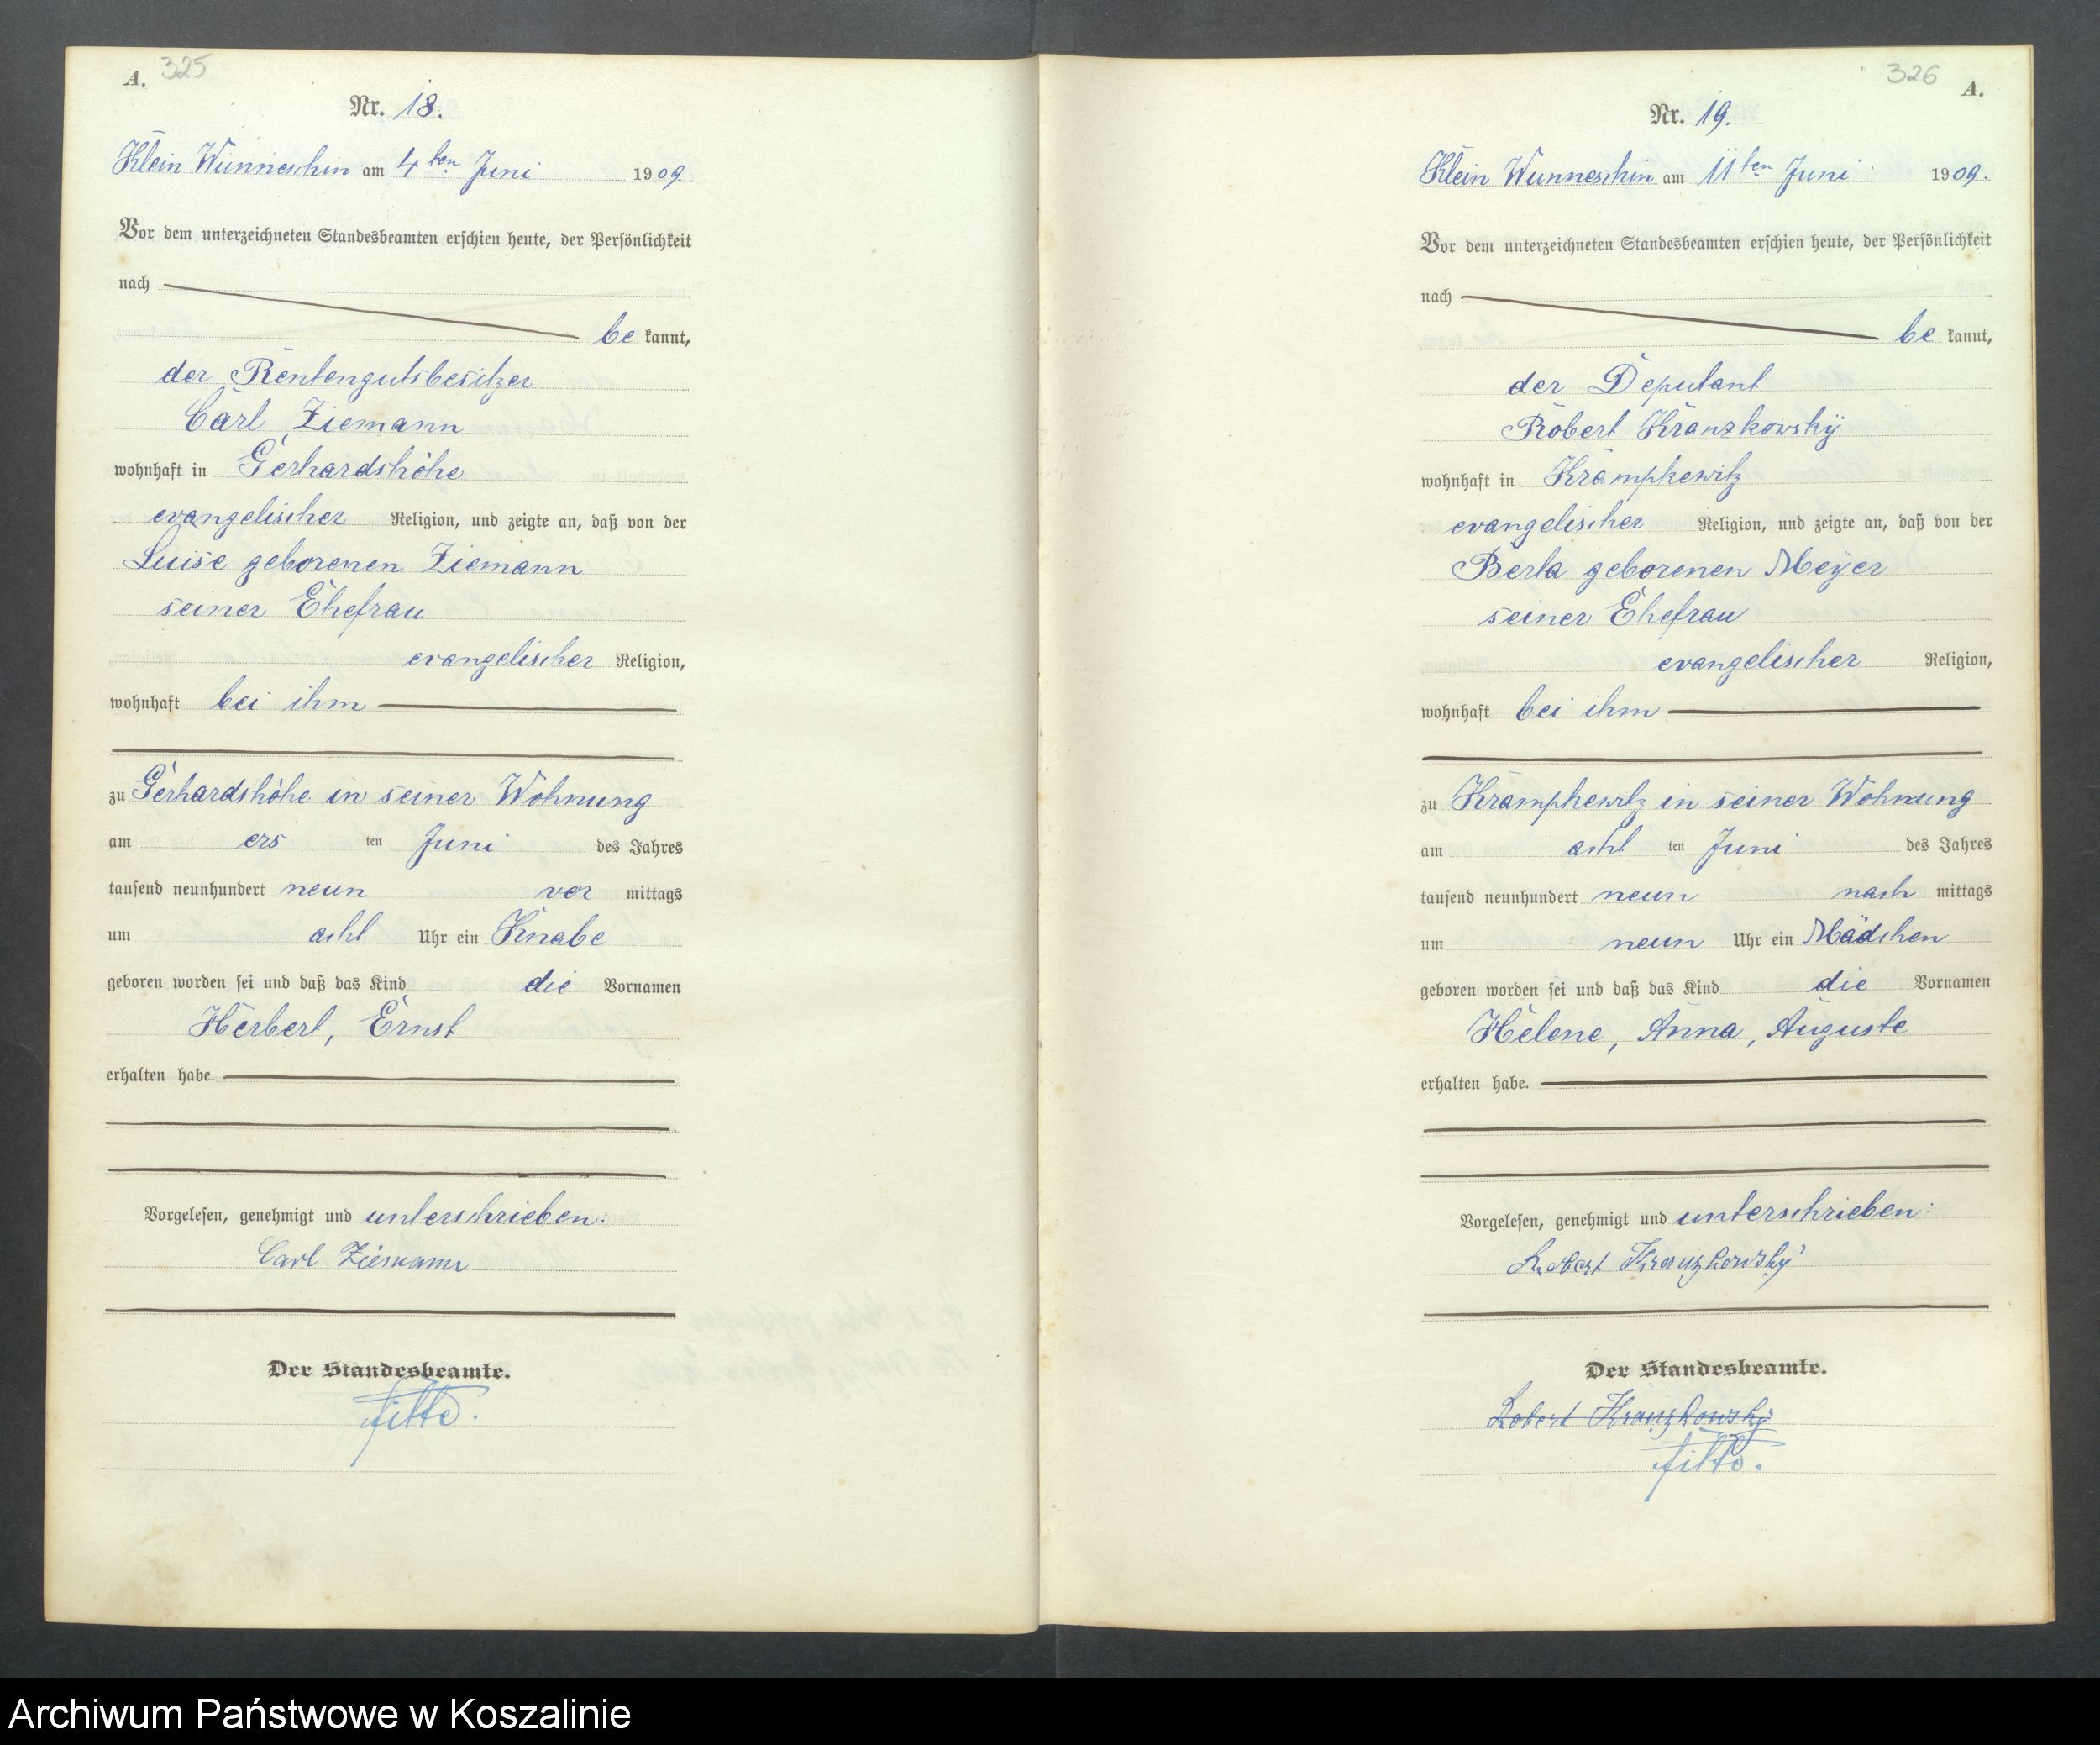 A. 325
Nr. 18.
Klein Wunneschin am 4ten Juni 1909
Vor dem unterzeichneten Standesbeamten erschien heute, der Persönlichkeit
nach
be kannt,
der Rentengutsbesitzer
Carl Ziemann
wohnhaft in Gerhardshöhe
evangelischer Religion, und zeigte an, daß von der
Luise geborenen Ziemann
seiner Ehefrau
evangelischer Religion,
wohnhaft bei ihm
zu Gerhardshöhe in seiner Wohnung
am ers ten Juni des Jahres
tausend neunhundert neun vor mittags
um acht Uhr ein Knabe
geboren worden sei und daß das Kind die Vornamen
Herbert, Ernst
erhalten habe.
Vorgelesen, genehmigt und unterschrieben:
Carl Ziemann
Der Standesbeamte.
326 A.
Nr. 19.
Klein Wunneschin am 11ten Juni 1909.
Vor dem unterzeichneten Standesbeamten erschien heute, der Persönlichkeit
nach
be kannt,
der Deputant
Robert Kranzkowsky
wohnhaft in Krampkewitz
evangelischer Religion, und zeigte an, daß von der
Berta geborenen Meyer
seiner Ehefrau
evangelischer Religion,
wohnhaft bei ihm
zu Krampkewitz in seiner Wohnung
am acht ten Juni des Jahres
tausend neunhundert neun nach mittags
um neun Uhr ein Mädchen
geboren worden sei und daß das Kind die Vornamen
Helene, Anna, Auguste
erhalten habe.
Vorgelesen, genehmigt und unterschrieben:
Robert Kranzkowsky
Der Standesbeamte.
Robert Kranzkowsky
Archiwum Państwowe w Koszalinie